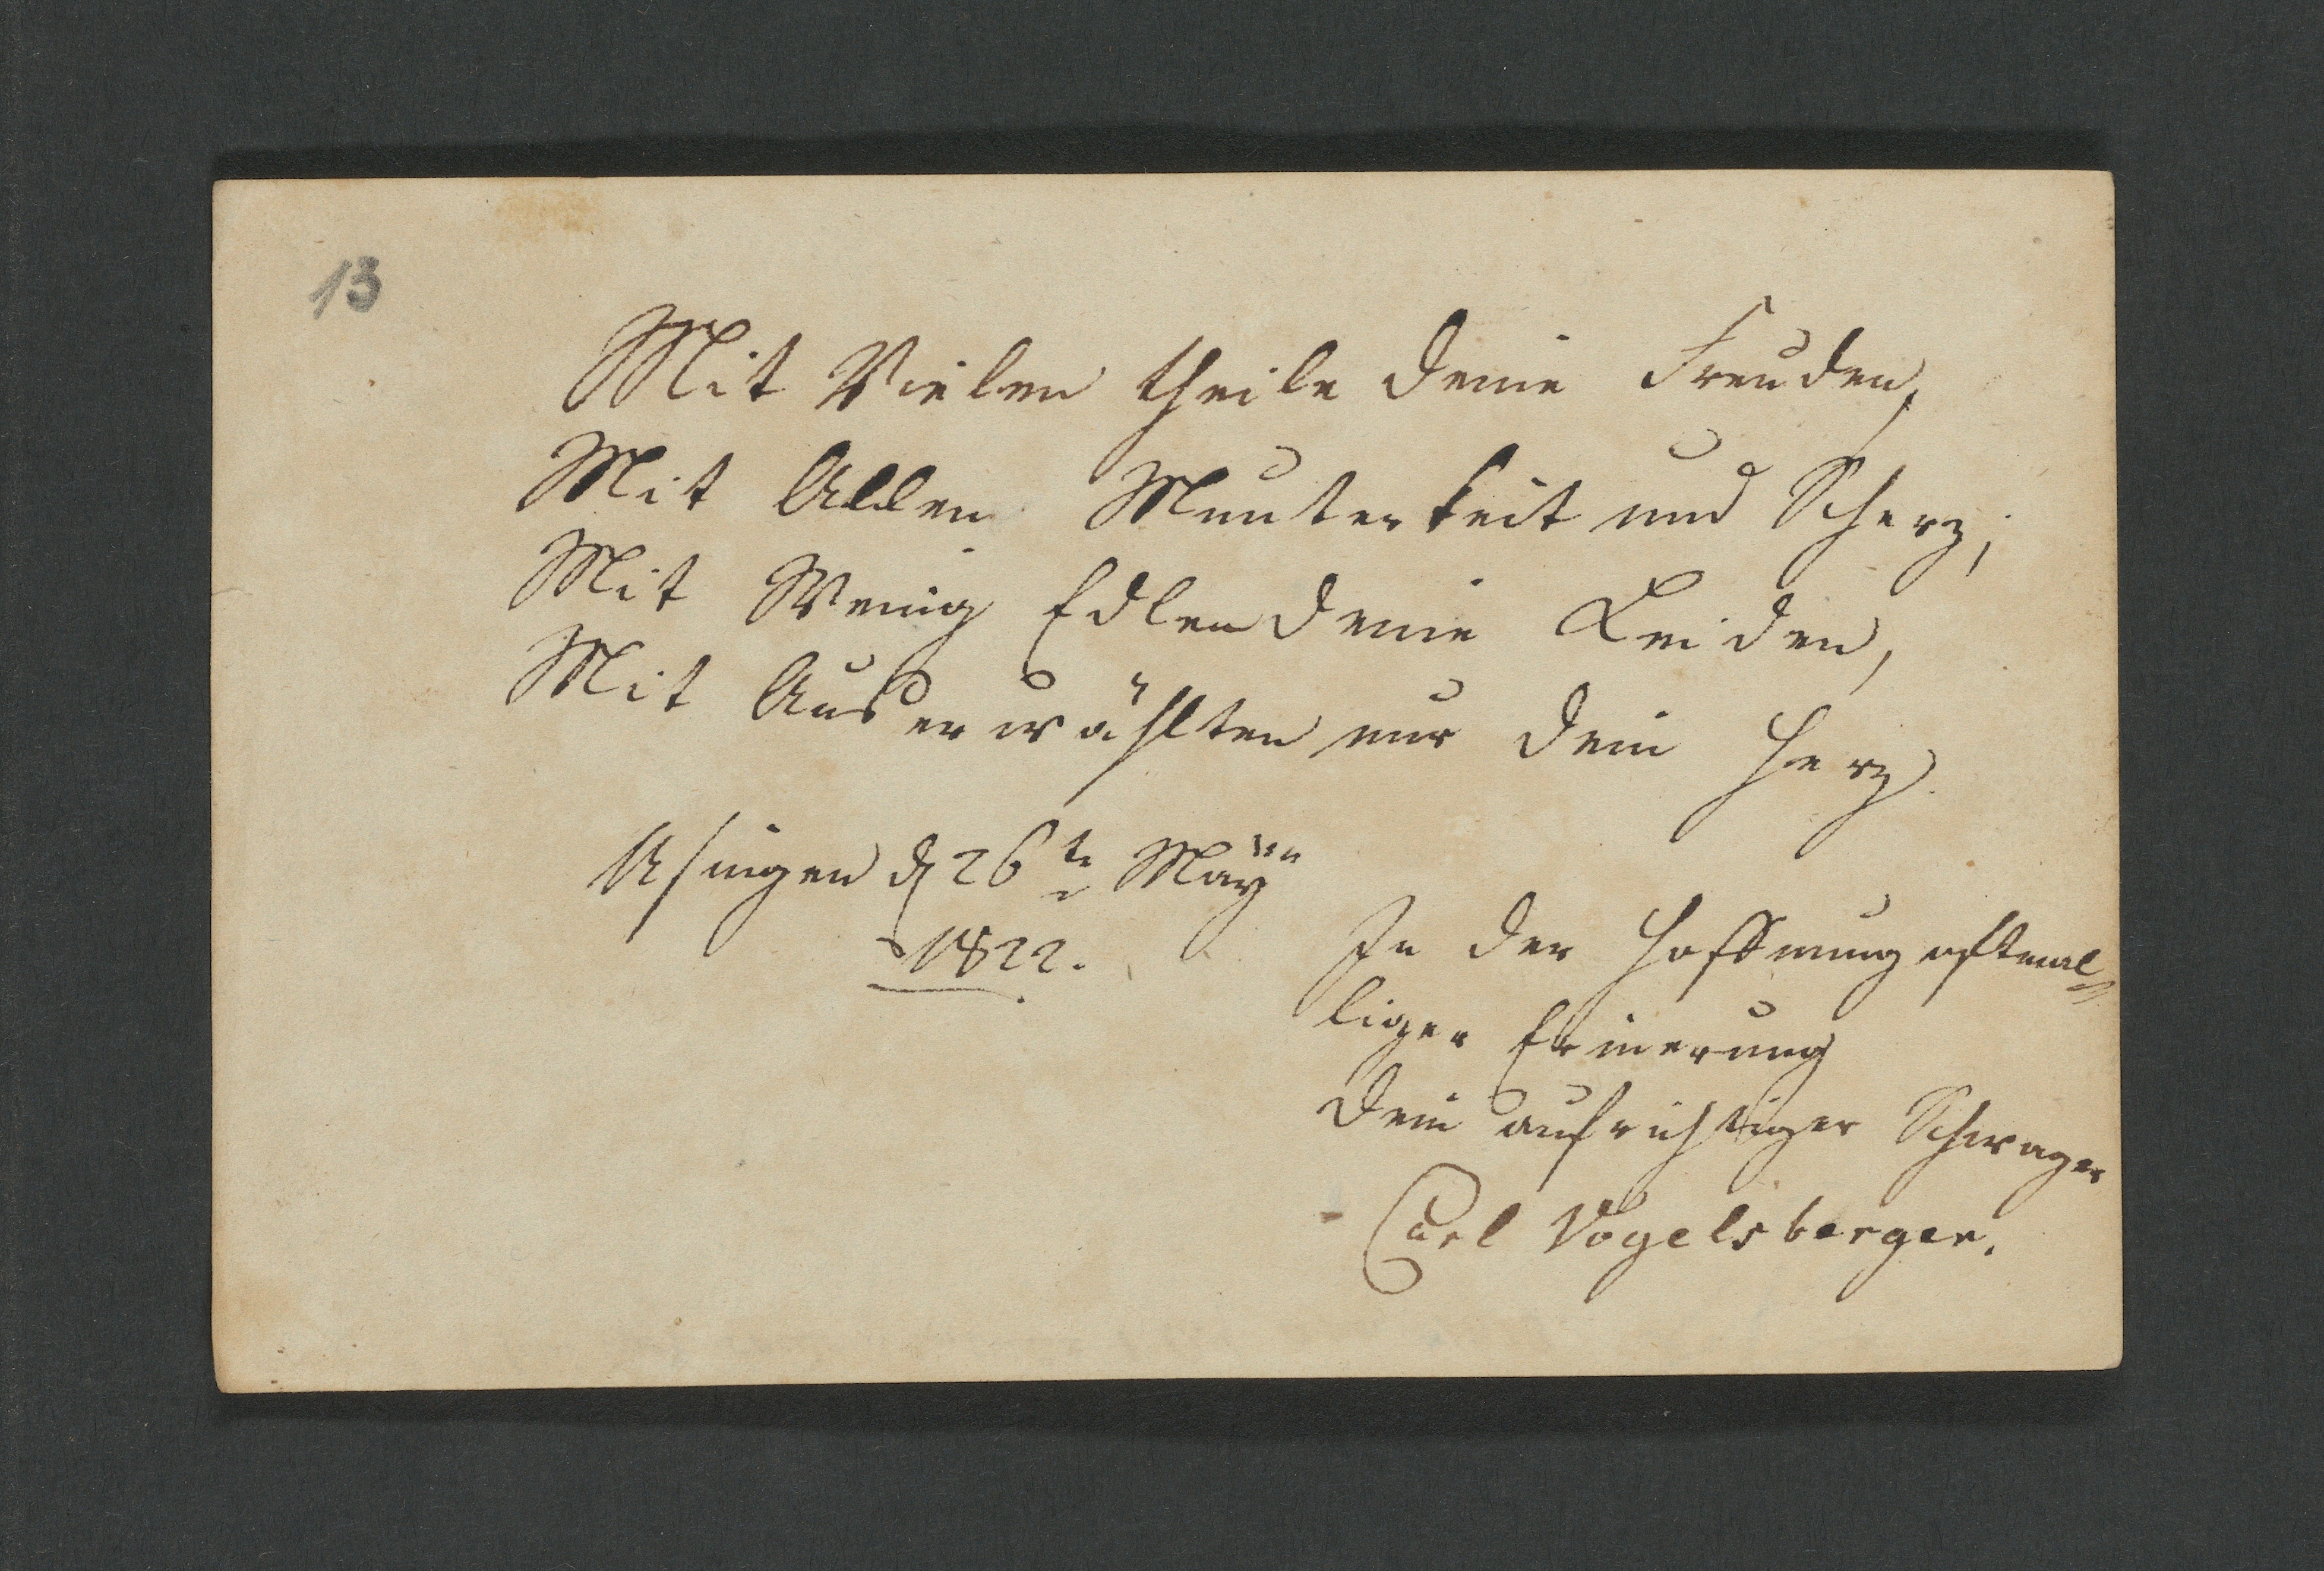 13
Mit Vielen theile deine Freuden,
Mit Allen Munterkeit und Scherz;
Mit Wenig Edlen deine Leiden,
Mit Auserwählten nur dein Herz.
Usingen d 26te May
1822.
In der Hoffnung oftmal=
liger Erinerung
dein aufrichtiger Schwager
Carl Vogelsberger.